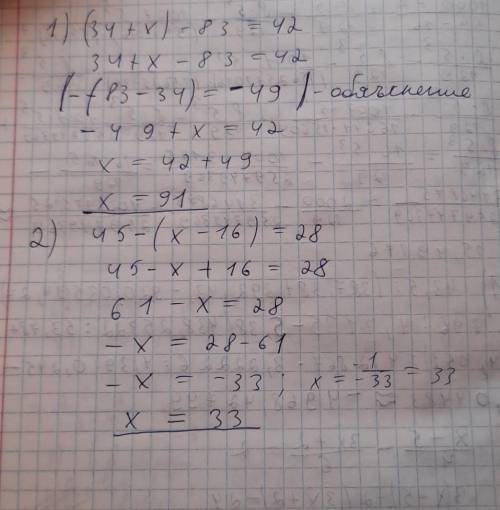 1) (34+x) - 83 = 42
34+x - 83 = 42
/-(83-34) = -49 /- объяснение
- 49 + x = 42
x = 42+49
x = 91
2) 45-(x-16) = 28
45-x+16 = 28
61 - x = 28
-x = 28-61
-x = -33 ; x = -1/-33 = 33
x = 33